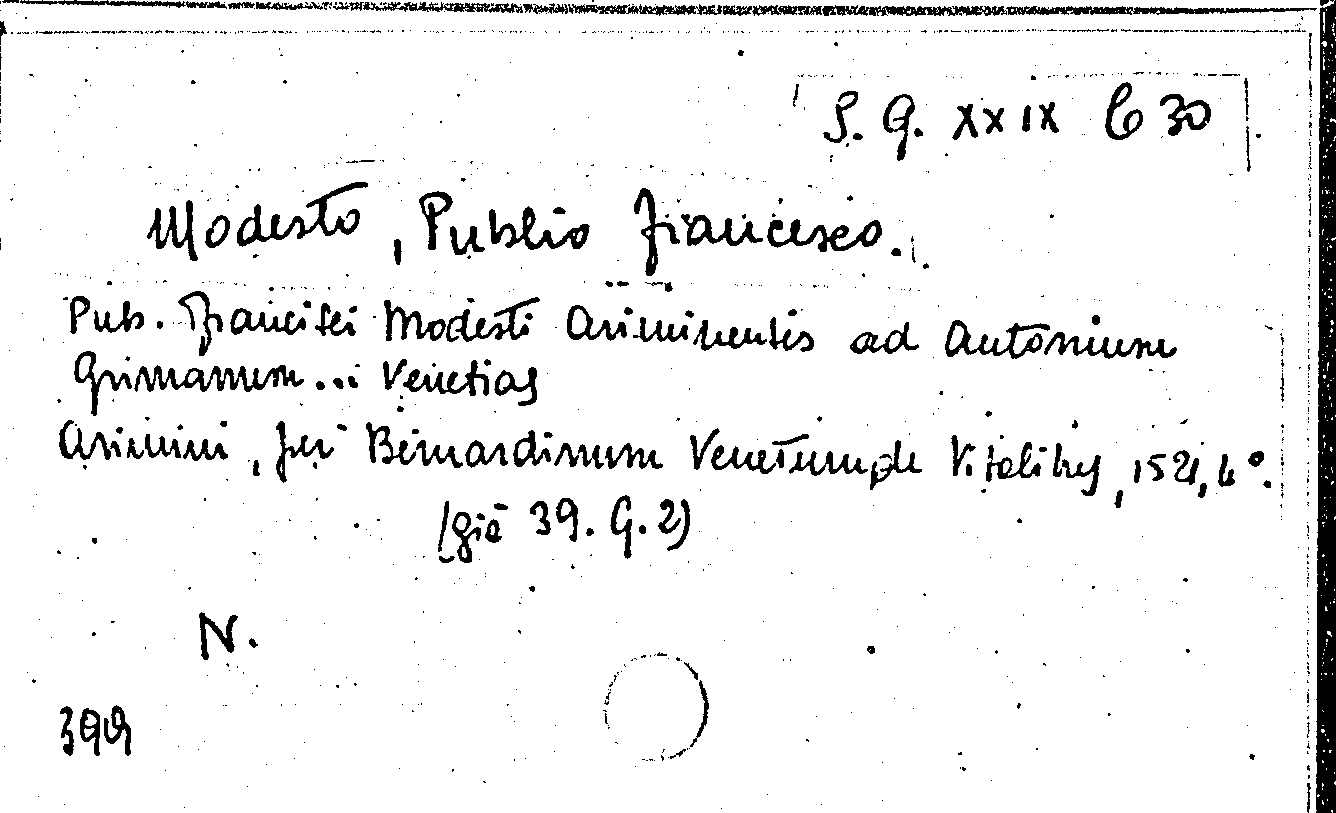 S. Q. XXIX C 30
Modesto, Publio Francesco.
Pub. Francisci Modesti Ariminensis ad Antonium
Grimanum... Venetias
Arimini, per Bernardinum Venetum de Vitalibus, 1521, 4°.
(già 39. G. 2)
N.
399